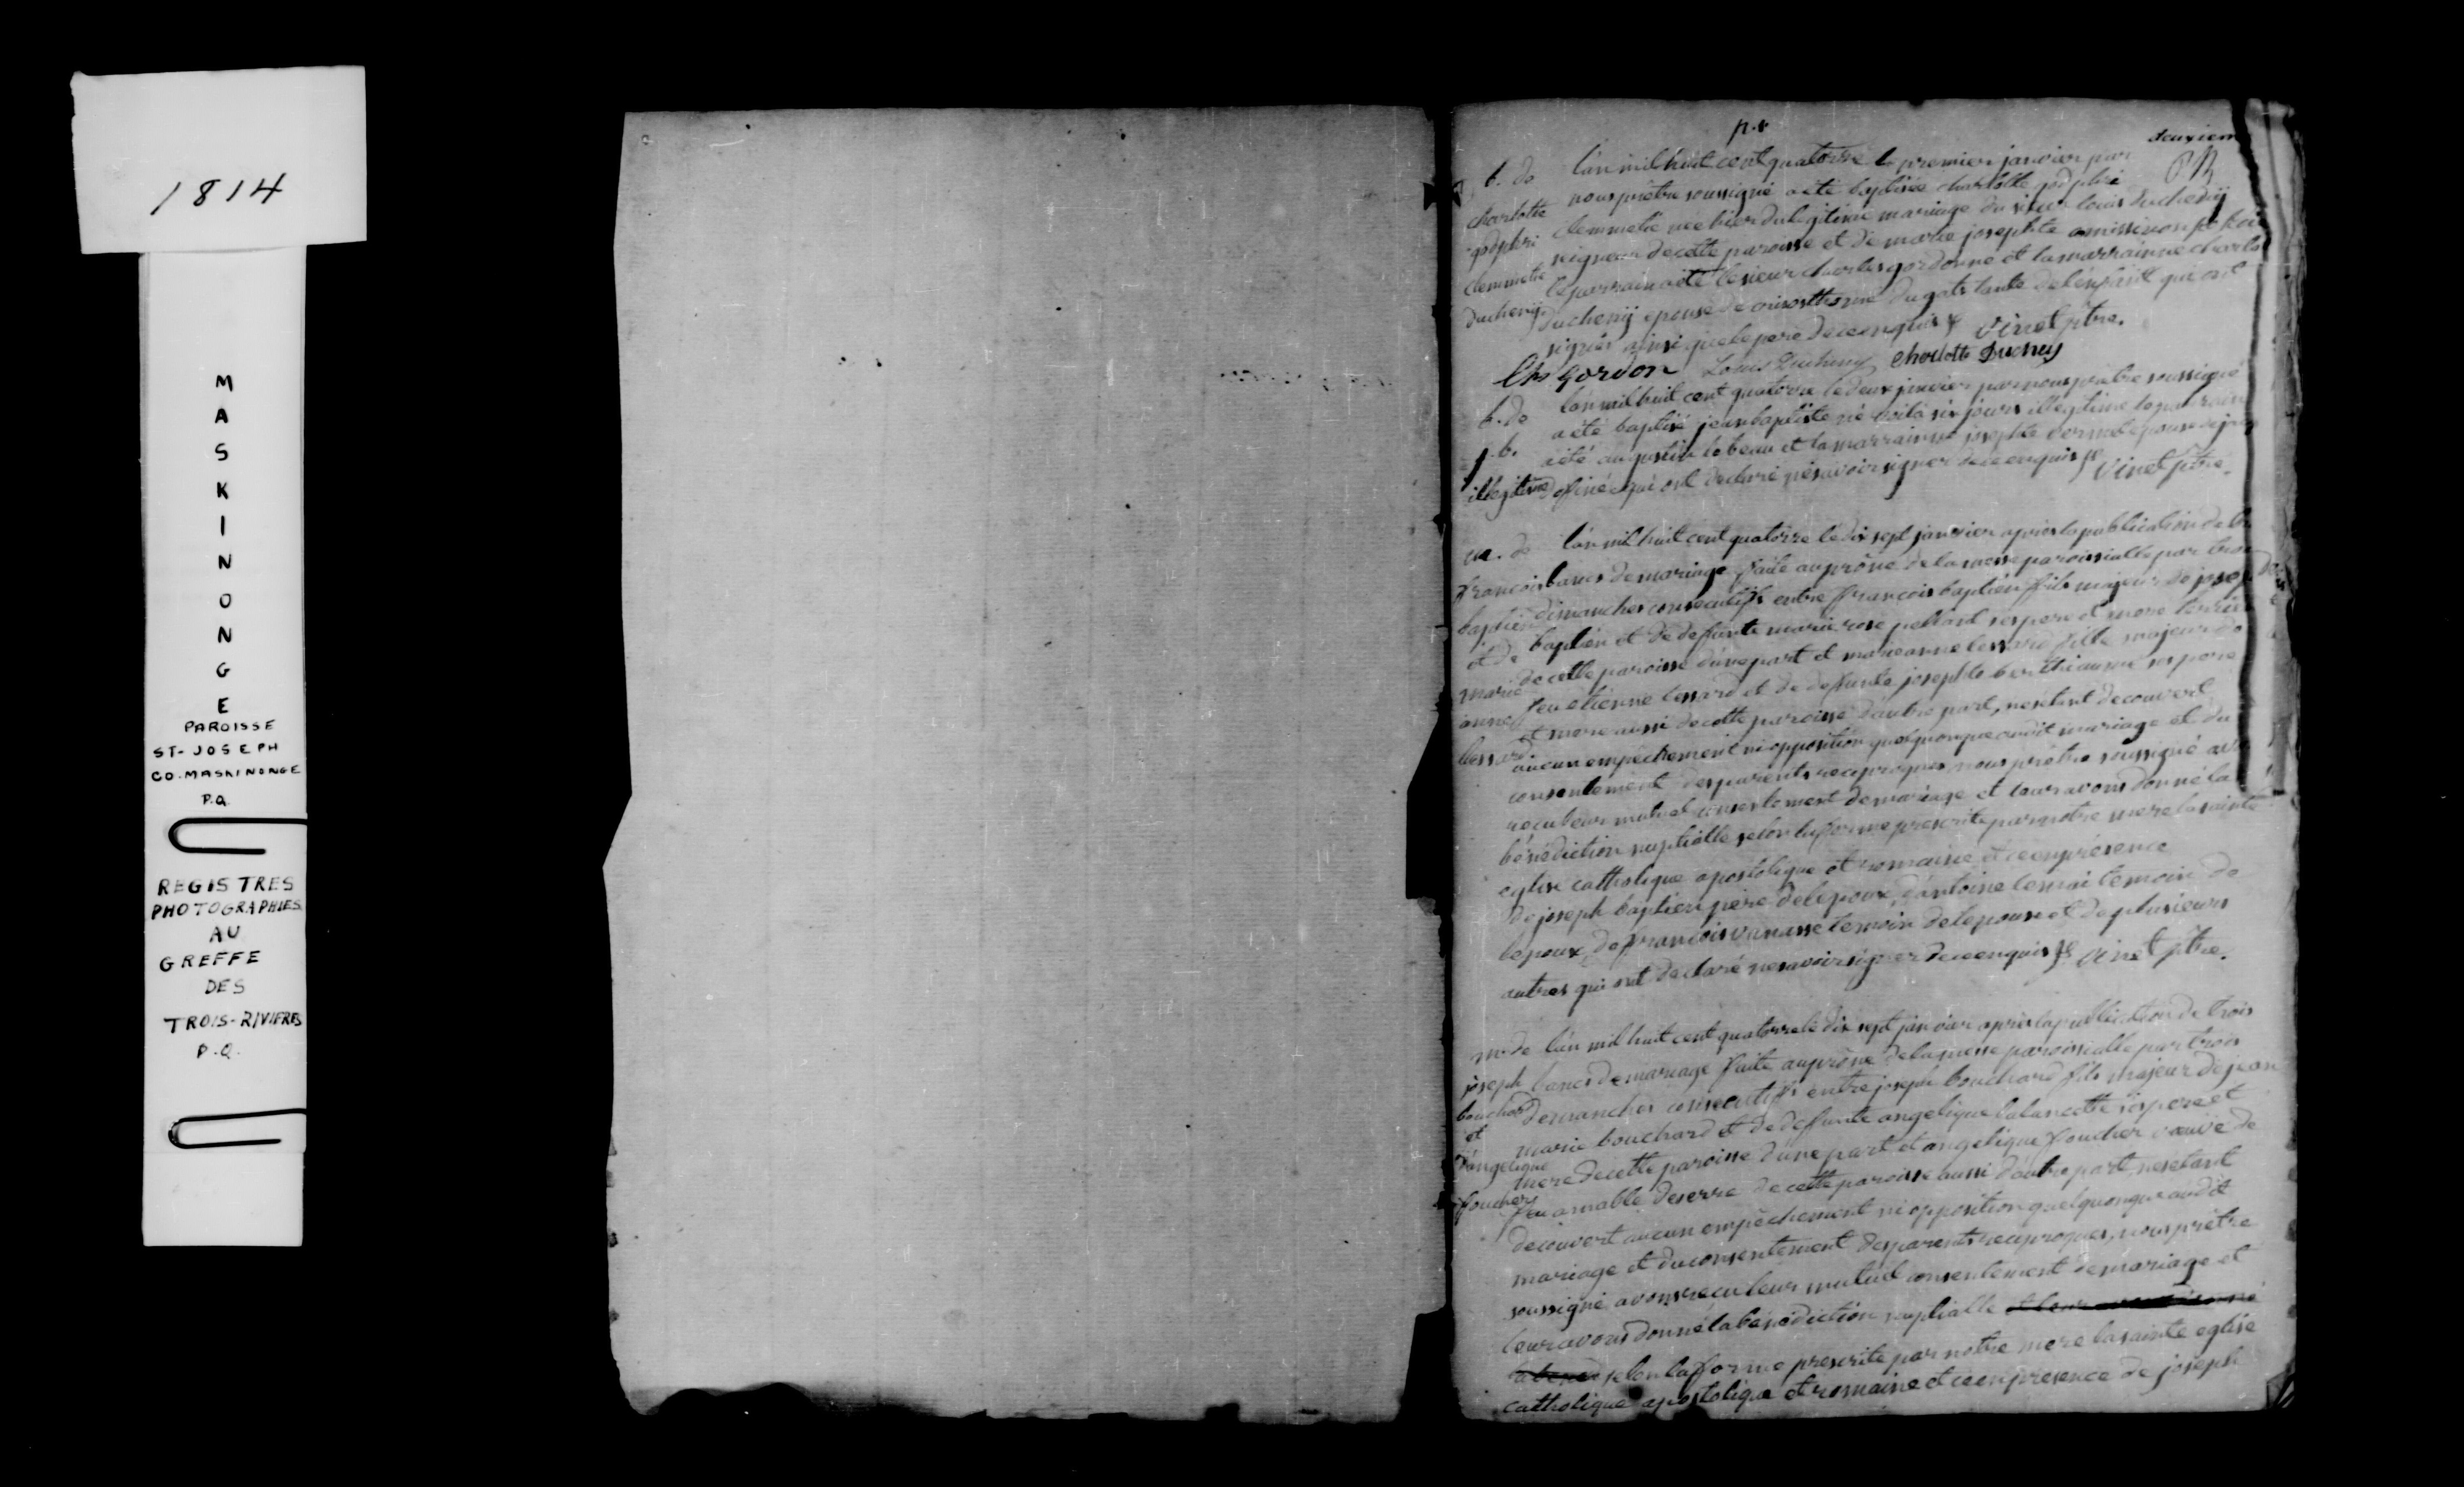 1814
M
A
S
K
I
N
O
N
G
E
PAROISSE
ST-JOSEPH
CO-MASKINONGE
P.Q.
REGISTRES
PHOTOGRAPHIES
AU
GREFFE
DES
TROIS-RIVIERES
P.Q.
deuxiem
b. de
charlotte
godphri
clemmetie
ducheny
l'an mil huit cent quatorze le premier janvier par
nous prêtre soussigné a été baptisée charlotte godphri
clemmetie née hier du legitime mariage du sieur louis ducheny
signeur de cette paroisse et de marie josephte
le parrain a été le sieur charles gordonne et la marrainne charlo
ducheny epouse de tante de l'enfant qui ont
signés ainsi que le pere de ce enquis vinet ptre.
Chs Gordon Louis Ducheny Charlotte Ducheny
b. de
j. b.
illegitime
l'an mil huit cent quatorze le deux janvier par nous prêtre soussigné
a été baptisé jean baptiste né voila six jours illegitime le parrain
a été augustin le beau et la marrainne josephte epouse de
qui ont declaré ne savoir signer de ce enquis vinet ptre.
m. de
francois
baptien
et de
marie
anne
lessard
l'an mil huit cent quatorze le dix sept janvier après la publication de
bancs de mariage faite au prône de la messe paroissialle par troi
dimanches consecutifs entre francois baptien fils majeur de josep
baptien et de deffunte marie rose pellant ses pere et mere
de cette paroisse d'une part et marie anne lessard fille majeur de
feu etienne lessard et de deffunte josephte berthiaume ses pere
et mere aussi de cette paroisse d'autre part, nesetant decouvert
aucun empêchement ni opposition quelquonque audit mariage et du
consentement des parents reciproques nous prêtre soussigné avo
reçu leur mutuel consentement de mariage et leur avons donné la
bénédiction nuptialle selon la forme prescrite par notre mere la sainte
eglise catholique apostolique et romaine et ce en présence
de joseph baptien pere de lepoux, d'antoine lemai temoin de
lepoux, de francois vanasse temoin de lepouse et de plusieurs
autres qui ont declaré ne savoir signer de ce enquis vinet ptre.
m. de
joseph
bouchard
et
d'angelique
foucher
l'an mil huit cent quatorze le dix sept janvier après la publication de trois
bancs de mariage faite au prône de la messe paroissialle par trois
demanches consecutifs entre joseph bouchard fils majeur de jean
marie bouchard et de deffunte angelique lalancette ses pere et
mere de cette paroisse d'une part et angelique foucher veuve de
feu amable deserre de cette paroisse aussi d'autre part, nesetant
decouvert aucun empêchement ni opposition quelquonque audit
mariage et du consentement des parents reciproques, nous prêtre
soussigné avons reçu leur mutuel consentement de mariage et
leur avons donné la bénédiction nuptialle
selon la forme prescrite par notre mere la sainte eglise
catholique apostolique et romaine et ce en présence de joseph